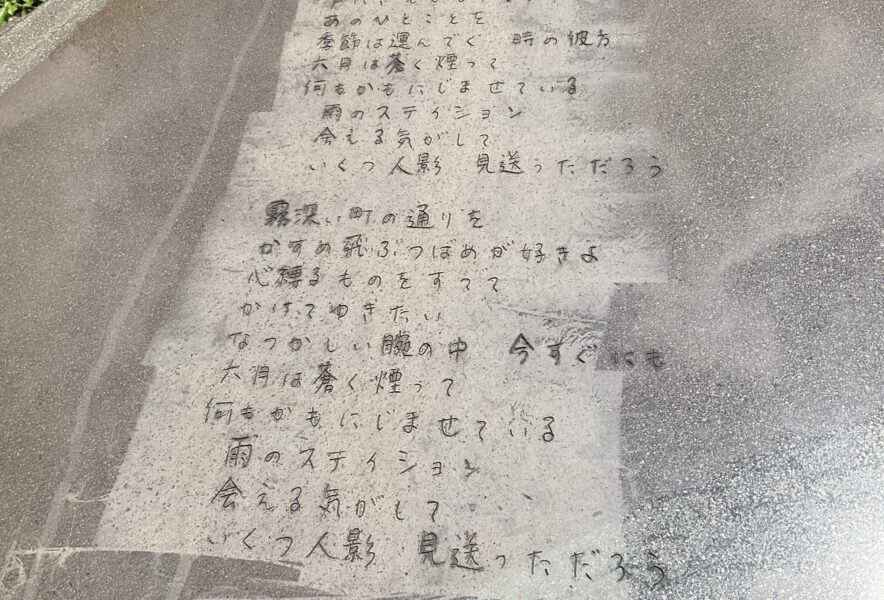 あのひとことを
季節は運んでく 時の彼方
六月は蒼く煙って
何もかもにじませている
雨のステイション
会える気がして
いくつ人影 見送っただろう
霧深い町の通りを
かすめ飛ぶつばめが好きよ
心縛るものをすてて
かけてゆきたい
なつかしい腕の中 今すぐにも
六月は蒼く煙って
何もかもにじませている
雨のステイション
会える気がして
いくつ人影 見送っただろう